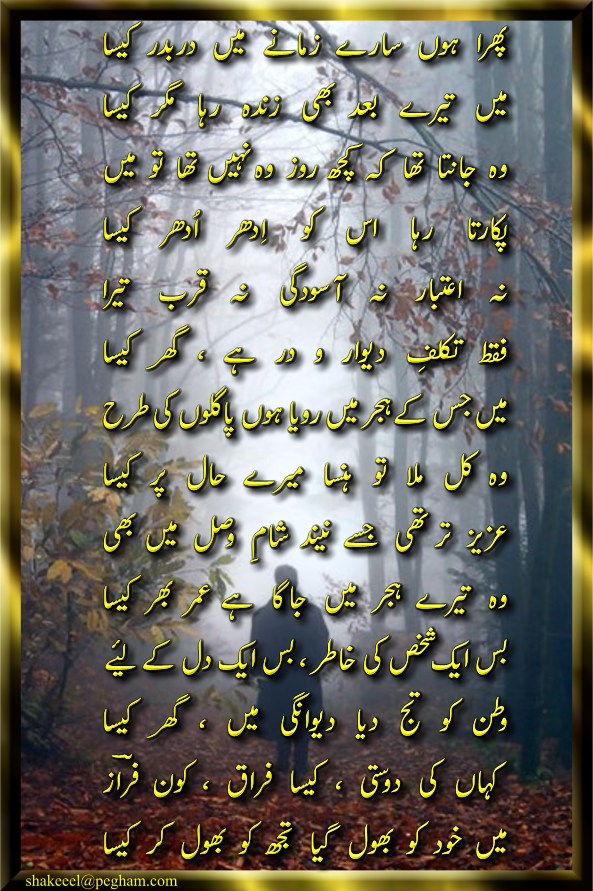 پھرا ہوں سارے زمانے میں دربدر کیسا
میں تیرے بعد بھی زندہ رہا مگر کیسا
وہ جانتا تھا کہ کچھ روز وہ نہیں تھا تو میں
پکارتا رہا اس کو اِدھر اُدھر کیسا
نہ اعتبار نہ آسودگی نہ قرب تیرا
فقط تکلفِ دیوار و در ہے ، گھر کیسا
میں جس کے ہجر میں رویا ہوں پاگلوں کی طرح
وہ کل ملا تو ہنسا میرے حال پر کیسا
عزیز تر تھی جسے نیند شامِ وصل میں بھی
وہ تیرے ہجر میں جاگا ہے عمر بھر کیسا
بس ایک شخص کی خاطر ، بس ایک دل کے لیٔے
وطن کو تج دیا دیوانگی میں ، گھر کیسا
کہاں کی دوستی ، کیسا فراق ، کون فرازؔ
میں خود کو بھول گیا تجھ کو بھول کر کیسا
shakeeel@pegham.com